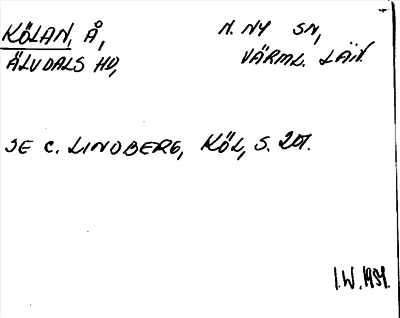 KÖLAN, Å, N. NY SN,
ÄLVDALS HD, VÄRML. LÄN.
SE C. LINDBERG, KÖL, S. 201.
I.W. 1951.